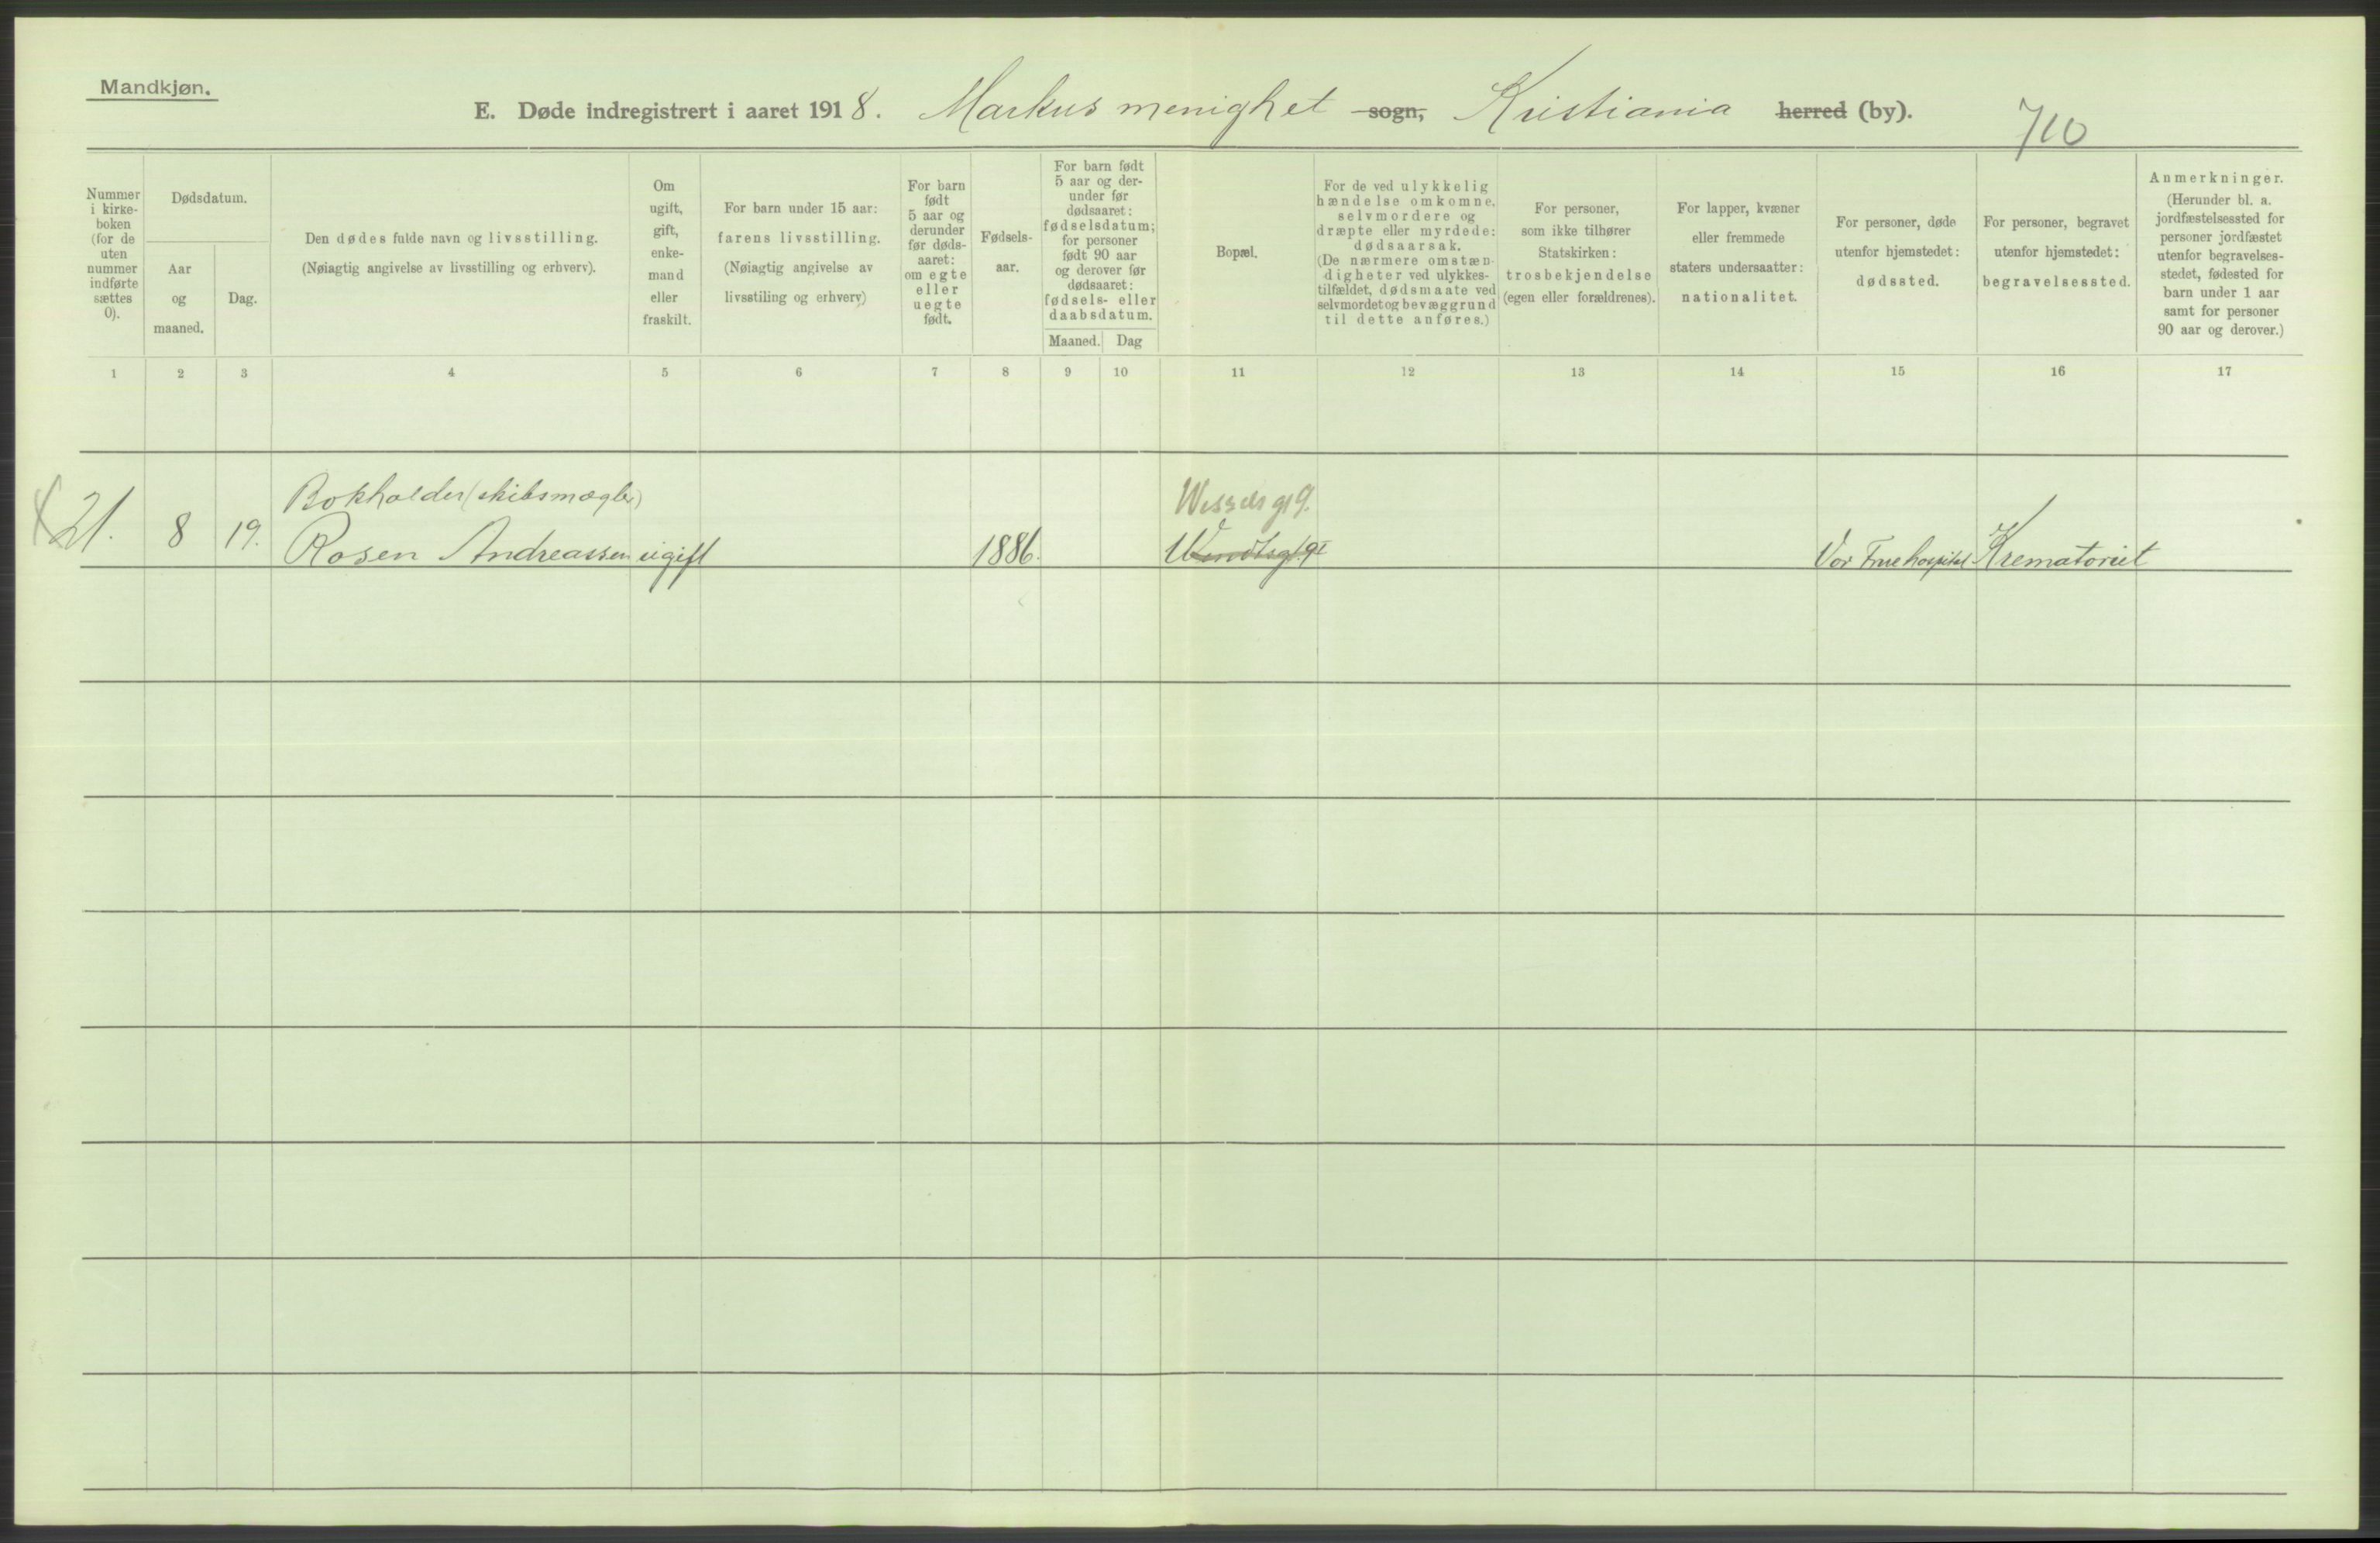 Mandkjøn.
E. Døde indregistrert i aaret 1918. Markus menighet sogn, Kristiania herred (by).
710
Nummer
i kirke-
boken
(for de
uten
nummer
indførte
sættes
0).
Dødsdatum.
Aar
og
maaned.
Dag.
Den dødes fulde navn og livsstilling.
(Nøiagtig angivelse av livsstilling og erhverv).
Om
ugift,
gift,
enke-
mand
eller
fraskilt.
For barn under 15 aar:
farens livsstilling.
(Nøiagtig angivelse av
livsstiling og erhverv)
For barn
født
5 aar og
derunder
før døds-
aaret:
om egte
eller
uegte
født.
Fødsels-
aar.
For barn født
5 aar og der-
under før
dødsaaret:
fødselsdatum;
for personer
født 90 aar
og derover før
dødsaaret:
fødsels- eller
daabsdatum.
Maaned. Dag
Bopæl.
For de ved ulykkelig
hændelse omkomne,
selvmordere og
dræpte eller myrdede:
dødsaarsak.
(De nærmere omstæn-
digheter ved ulykkes-
tilfældet, dødsmaate ved
selvmordet og bevæggrund
til dette anføres.)
For personer,
som ikke tilhører
Statskirken:
trosbekjendelse
(egen eller forældrenes).
For lapper, kvæner
eller fremmede
staters undersaatter:
nationalitet.
For personer, døde
utenfor hjemstedet:
dødssted.
For personer, begravet
utenfor hjemstedet:
begravelsessted.
Anmerkninger.
(Herunder bl. a.
jordfæstelsessted for
personer jordfæstet
utenfor begravelses-
stedet, fødested for
barn under 1 aar
samt for personer
90 aar og derover.)
1 2 3 4 5 6 7 8 9 10 11 12 13 14 15 16 17
Bokholder (skibsmægler) Wessels gt 9.
21. 8 19. Rosen Andreassen ugift 1886. Vor Frue hospital Krematoriet